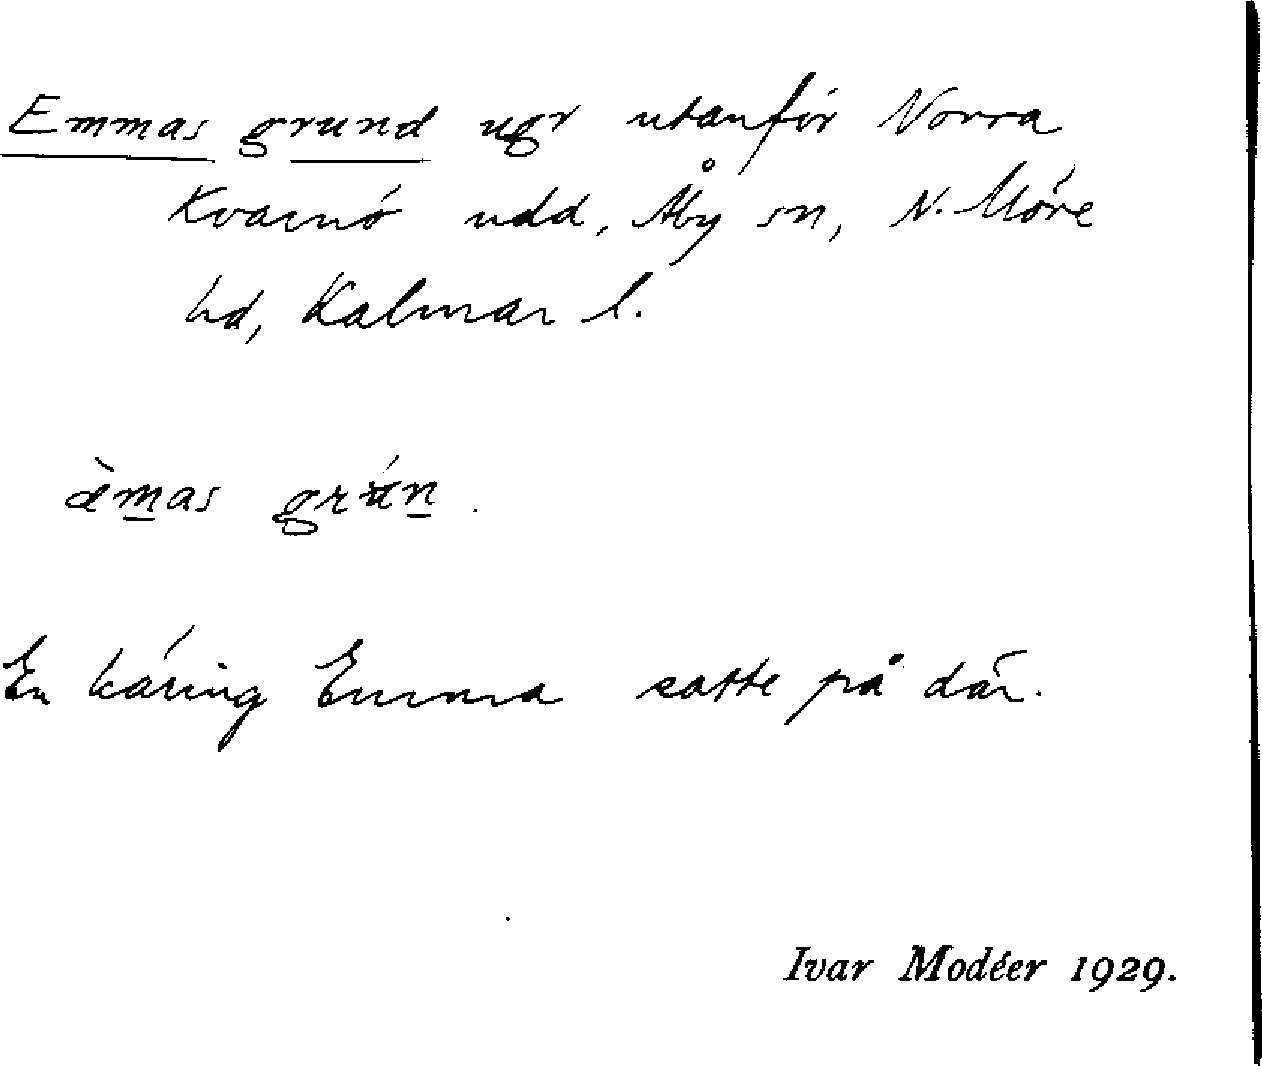 Emmas grund ugr utanför Norra
Kvarnö udd, Åby sn, N. Möre
hd, Kalmar l.
æ̀m̲as grún̲.
En käring Emma satte på där.
Ivar Modéer 1929.